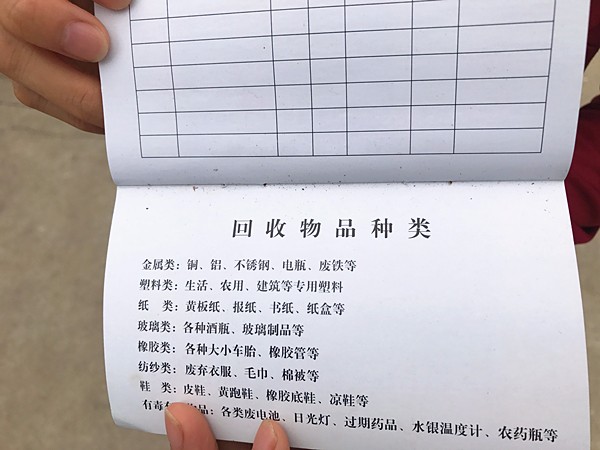 回收物品种类
金属类：铜、铝、不锈钢、电瓶、废铁等
塑料类：生活、农用、建筑等专用塑料
纸 类：黄板纸、报纸、书纸、纸盒等
玻璃类：各种酒瓶、玻璃制品等
橡胶类：各种大小车胎、橡胶管等
纺纱类：废弃衣服、毛巾、棉被等
鞋 类：皮鞋、黄跑鞋、橡胶底鞋、凉鞋等
有毒 物品：各类废电池、日光灯、过期药品、水银温度计、农药瓶等